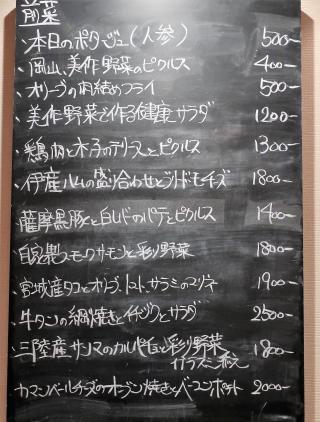 前菜
本日のポタージュ(人参) 500-
、岡山、美作野菜のピクルス 400-
、オリーブの肉詰めフライ 500-
、美作野菜で作る健康サラダ 1200-
、鶏肉と木の子のテリーヌとピクルス 1300-
、伊産ハムの盛り合わせとブルーチーズ 1800-
、薩摩黒豚と白レバのパテとピクルス 1400-
自家製スモークサーモンと彩り野菜 1800-
宮城産タコとオリーブ、トマト、サラミのマリネ 1900-
、牛タンの網焼きとイチジクとサラダ 2500-
、三陸産サンマのカルパッチョと彩り野菜 1800-
カラスミ添え
カマンベールチーズのオーブン焼きとベーコンポテト 2000-